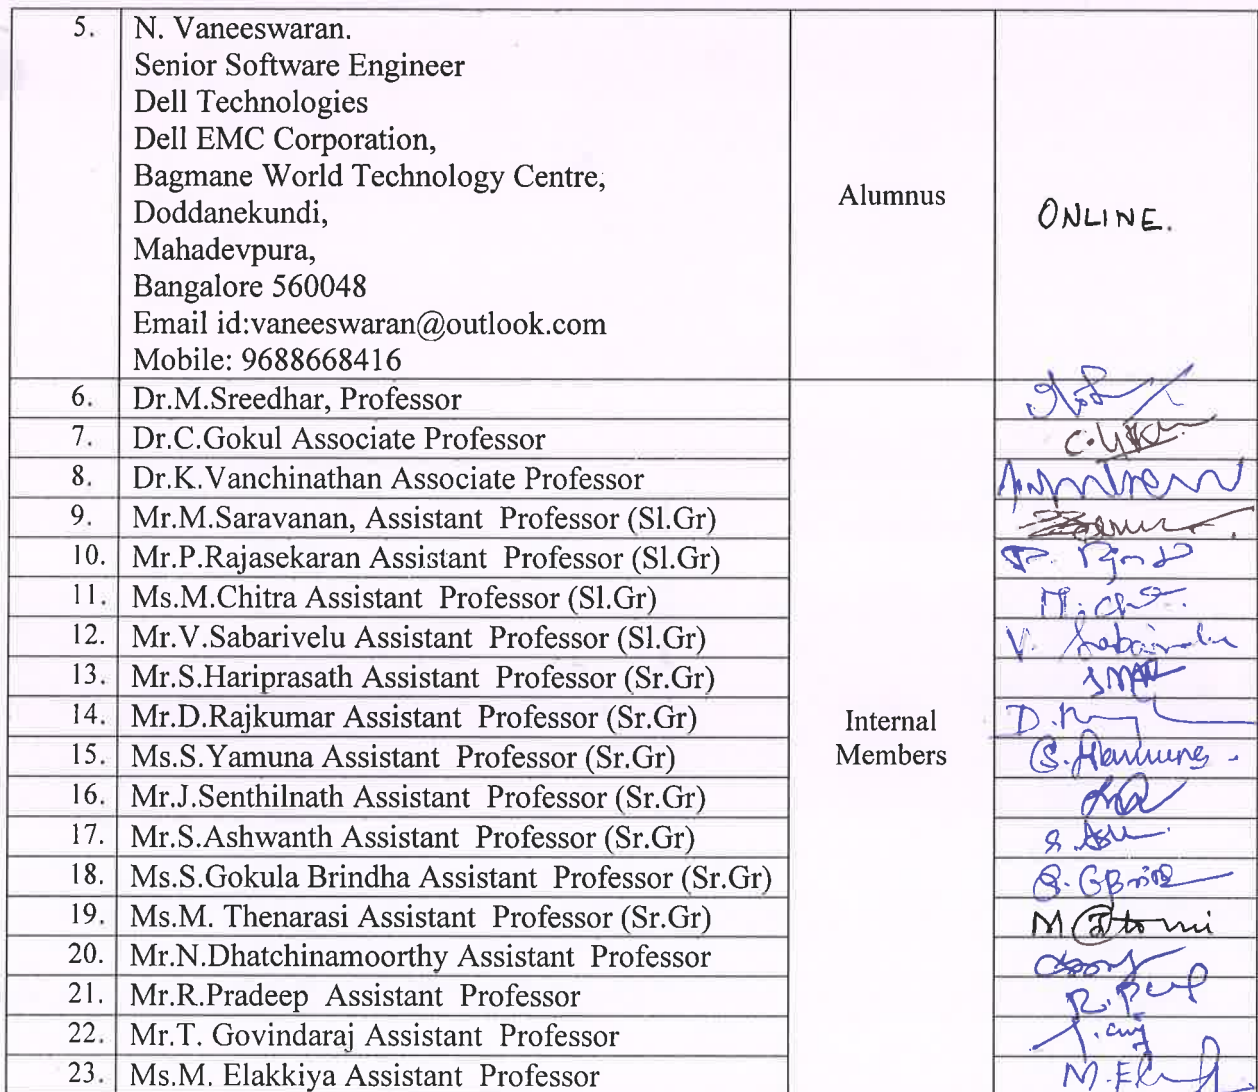 5. N. Vaneeswaran.
Senior Software Engineer
Dell Technologies
Dell EMC Corporation,
Bagmane World Technology Centre,
Doddanekundi,
Mahadevpura,
Bangalore 560048
Email id:vaneeswaran@outlook.com
Mobile: 9688668416
Alumnus
ONLINE.
6. Dr.M.Sreedhar, Professor
7. Dr.C.Gokul Associate Professor
8. Dr.K.Vanchinathan Associate Professor
9. Mr.M.Saravanan, Assistant Professor (Sl.Gr)
10. Mr.P.Rajasekaran Assistant Professor (Sl.Gr)
11. Ms.M.Chitra Assistant Professor (Sl.Gr)
12. Mr.V.Sabarivelu Assistant Professor (Sl.Gr)
13. Mr.S.Hariprasath Assistant Professor (Sr.Gr)
14. Mr.D.Rajkumar Assistant Professor (Sr.Gr)
15. Ms.S.Yamuna Assistant Professor (Sr.Gr)
16. Mr.J.Senthilnath Assistant Professor (Sr.Gr)
17. Mr.S.Ashwanth Assistant Professor (Sr.Gr)
18. Ms.S.Gokula Brindha Assistant Professor (Sr.Gr)
19. Ms.M. Thenarasi Assistant Professor (Sr.Gr)
20. Mr.N.Dhatchinamoorthy Assistant Professor
21. Mr.R.Pradeep Assistant Professor
22. Mr.T. Govindaraj Assistant Professor
23. Ms.M. Elakkiya Assistant Professor
Internal
Members